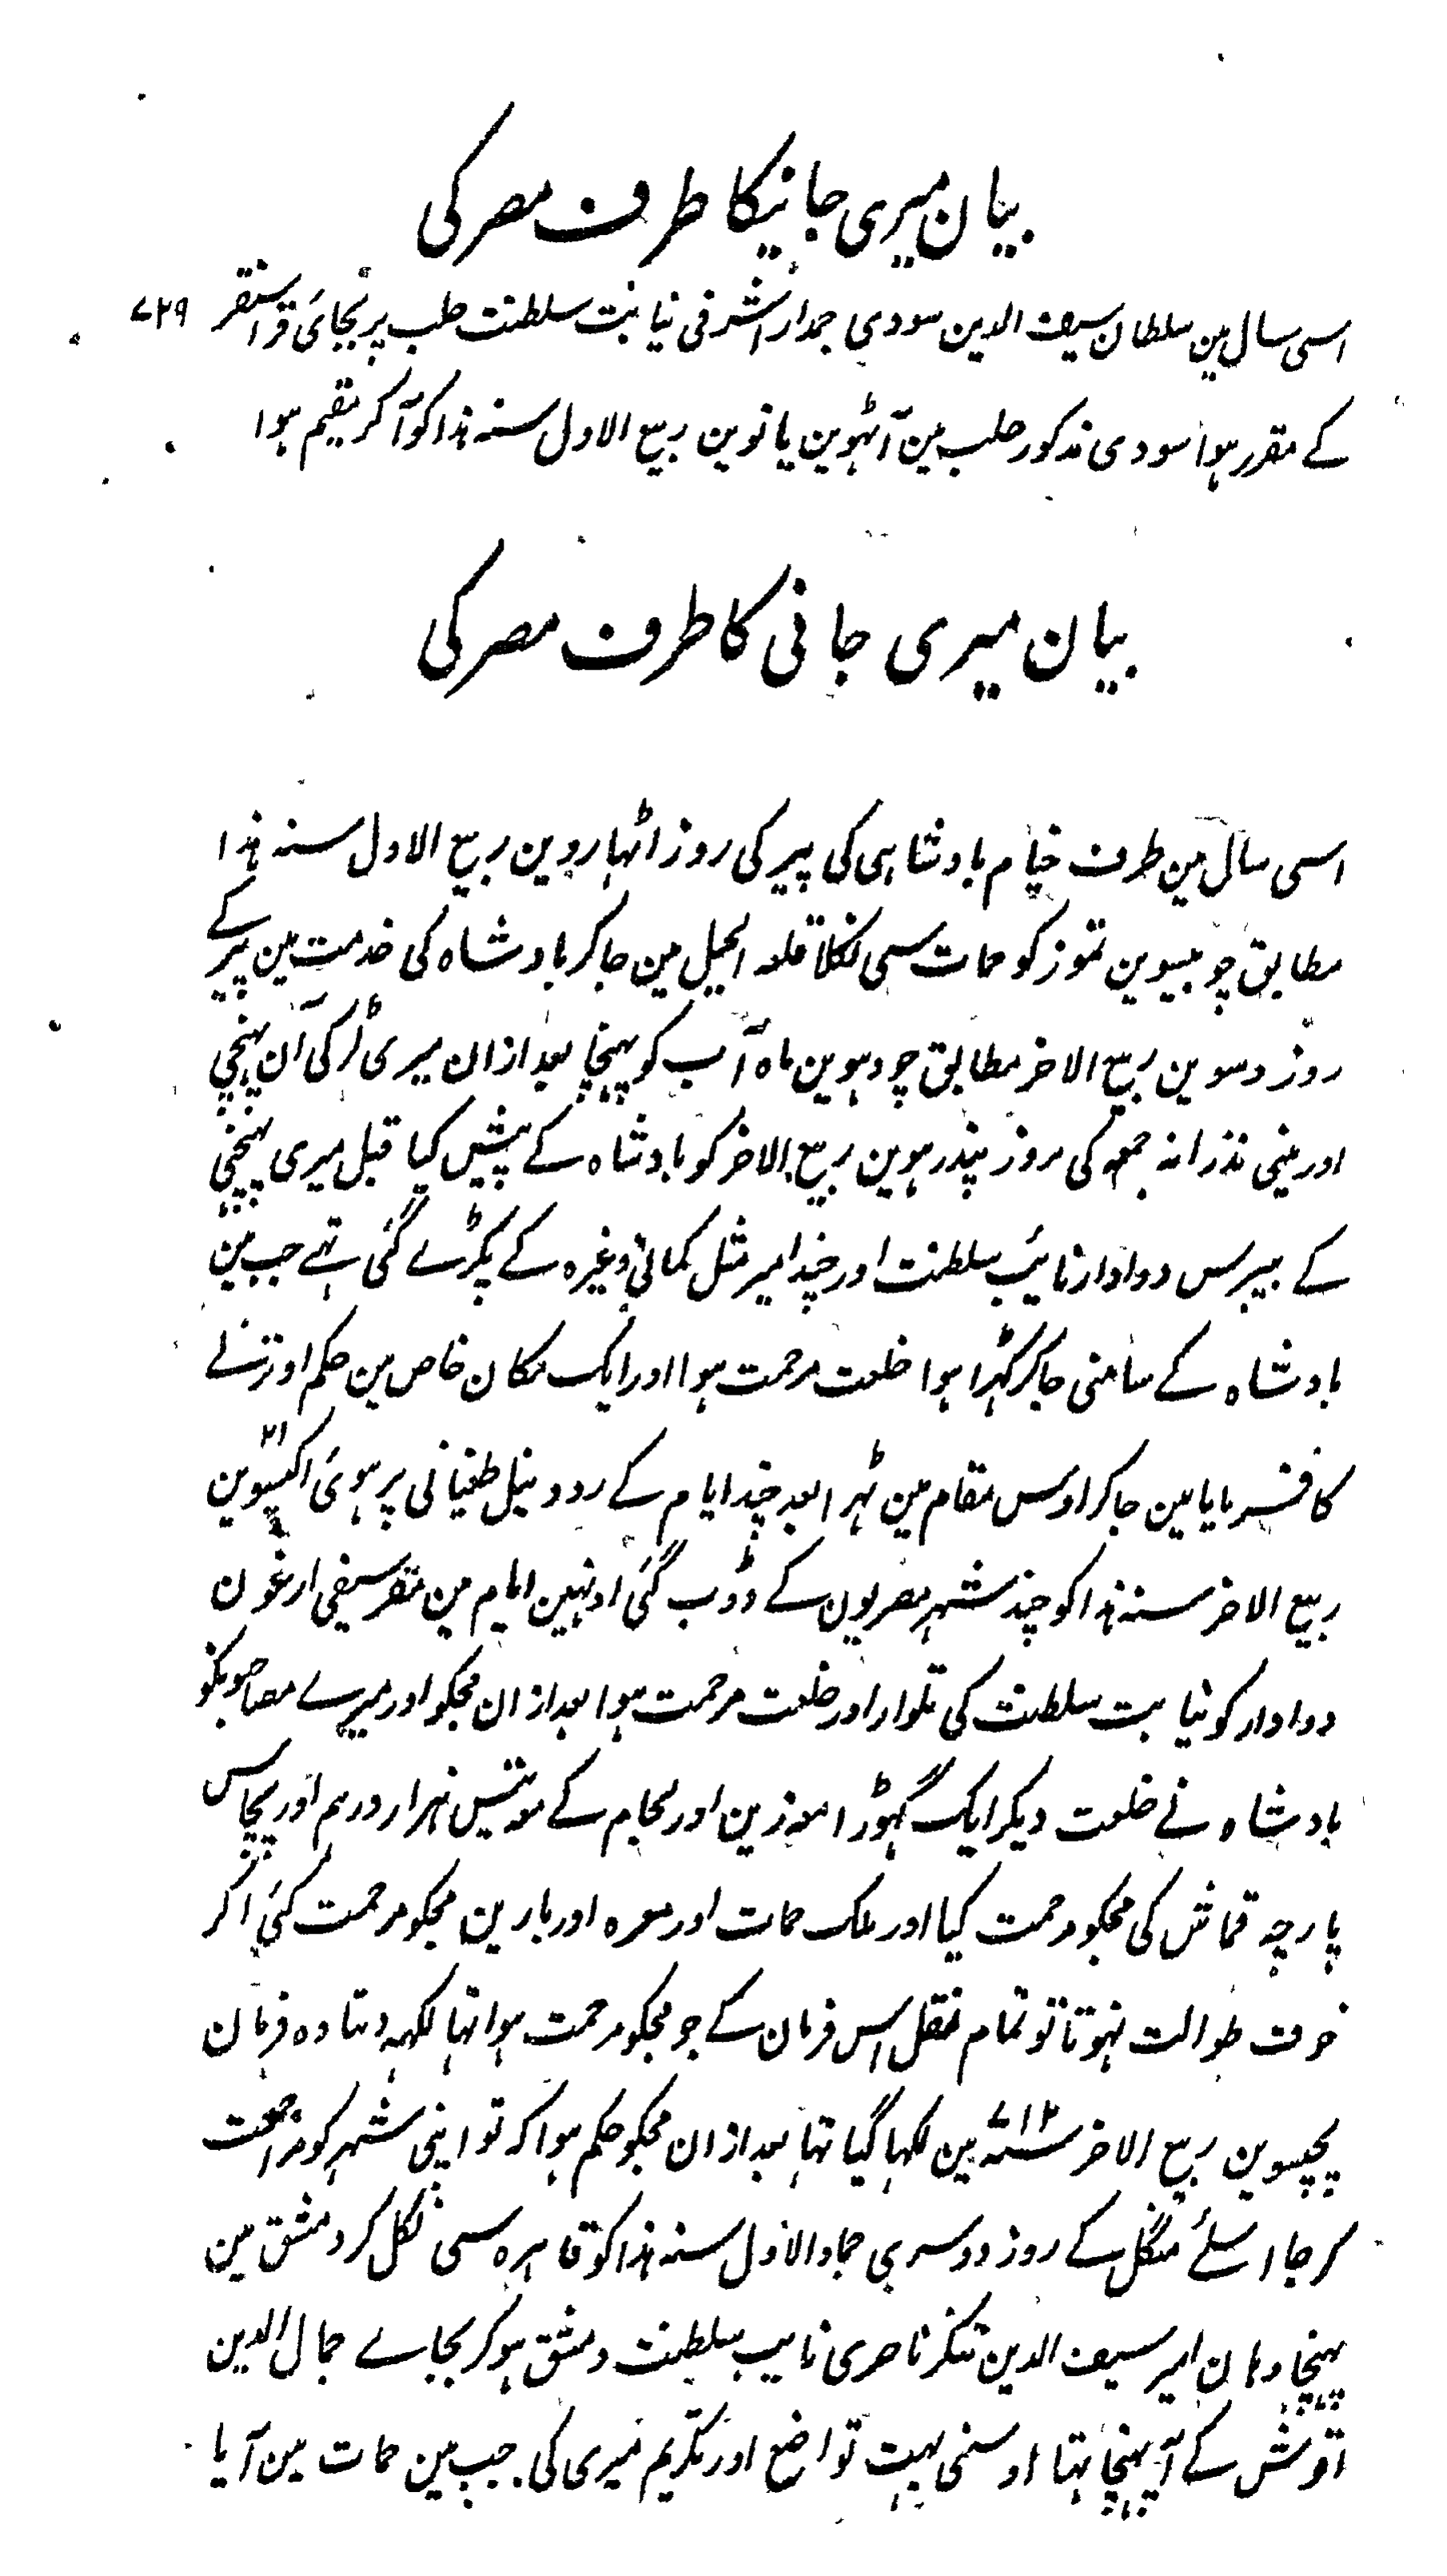 بیان میری جانیکا طرف مصر کی
اسی سال مین سلطان سیف الدین سودی جمدار اشرفی نیابت سلطنت حلب پر بجائ قراسنقر ۷۲۹
کے مقرر ہوا سودی مذکور حلب مین آٹہوین یا نوین ربیع الاول سنہ ہذا کو آ کر مقیم ہوا
بیان میری جانی کا طرف مصر کی
اسی سال مین طرف خیام بادشاہی کی پیر کی روز اٹہاروین ربیع الاول سنہ ہذا
مطابق چوبیسوین تموز کو حمات سی نکلا قلعہ الجبل مین جا کر بادشاہ کی خدمت مین پیر کے
روز دسوین ربیع الاخر مطابق چودہوین ماہ آب کو پہنچا بعد ازان میری لڑکی آن پہنچی
اور مینی نذرانہ جمعہ کی روز پندرہوین ربیع الاخر کو بادشاہ کے پیش کیا قبل میری پہنچنی
کے بیبرس دوادار نائیب سلطنت اور چند امیر مثل کمالی وغیرہ کے پکڑے گئی تہے جب مین
بادشاہ کے سامنی جا کر کہڑا ہوا خلعت مرحمت ہوا اور ایک مکان خاص مین حکم اوترنے
کا فرمایا مین جا کر اوس مقام مین ٹہرا بعد چند ایام کے رود نیل طغیانی پر ہوئ اکیسوین ۲۱
ربیع الاخر سنہ ہذا کو چند شہر مصریون کے ڈوب گئی اونہین ایام مین مقر سیفی ارغون
دوادار کو نیابت سلطنت کی تلوار اور خلعت مرحمت ہوا بعد ازان مجکو اور میرے مصاحبونکو
بادشاہ نے خلعت دیکر ایک گہوڑا معہ زین اور لجام کے معہ تیس ہزار درہم اور پچاس
پارچہ قماش کی مجکو مرحمت کیا اور ملک حمات اور معرہ اور بارین مجکو مرحمت کئی اگر
خوف طوالت نہوتا تو تمام نقل اس فرمان کے جو مجکو مرحمت ہوا تہا لکہہ دیتا وہ فرمان
پچیسوین ربیع الاخر سنہ ۷۱۲ مین لکہا گیا تہا بعد ازان مجکو حکم ہوا کہ تو اپنی شہر کو مراجعت
کر جا اسلئے منگل کے روز دوسری جماد الاول سنہ ہذا کو قاہرہ سی نکل کر دمشق مین
پہنچا وہان امیر سیف الدین تنکز ناصری نایب سلطنت دمشق ہو کر بجاے جمال الدین
اقوش کے آ پہنچا تہا اوسنی بہت تواضع اور تکریم میری کی جب مین حمات مین آیا